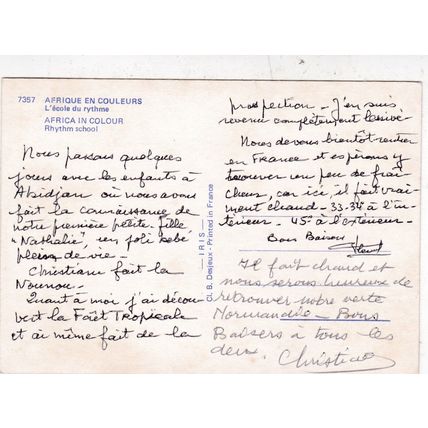 7357 AFRIQUE EN COULEURS
L'école du rythme
AFRICA IN COLOUR
Rhythm school
Nous passons quelques
jours avec les enfants à
Abidjan où nous avons
fait la connaissance de
notre première petite fille
"Nathalie", un joli bébé
plein de vie -
Christiane fait la
Nounou -
Quant à moi j'ai décou
vert la Forêt Tropicale
et ai même fait de la
IRIS
Cl. B. Desjeux - Printed in France
prospection - J'en suis
revenu complètement lessivé -
Nous devons bientôt rentrer
en France et espérons y
trouver un peu de fraî
cheur, car ici, il fait vrai
ment chaud - 33-34 à l'in
térieur - 45° à l'extérieur -
Bons Baisers
Il fait chaud et
nous serons heureux de
retrouver notre verte
Normandie - Bons
Baisers à tous les
deux.
Christiane